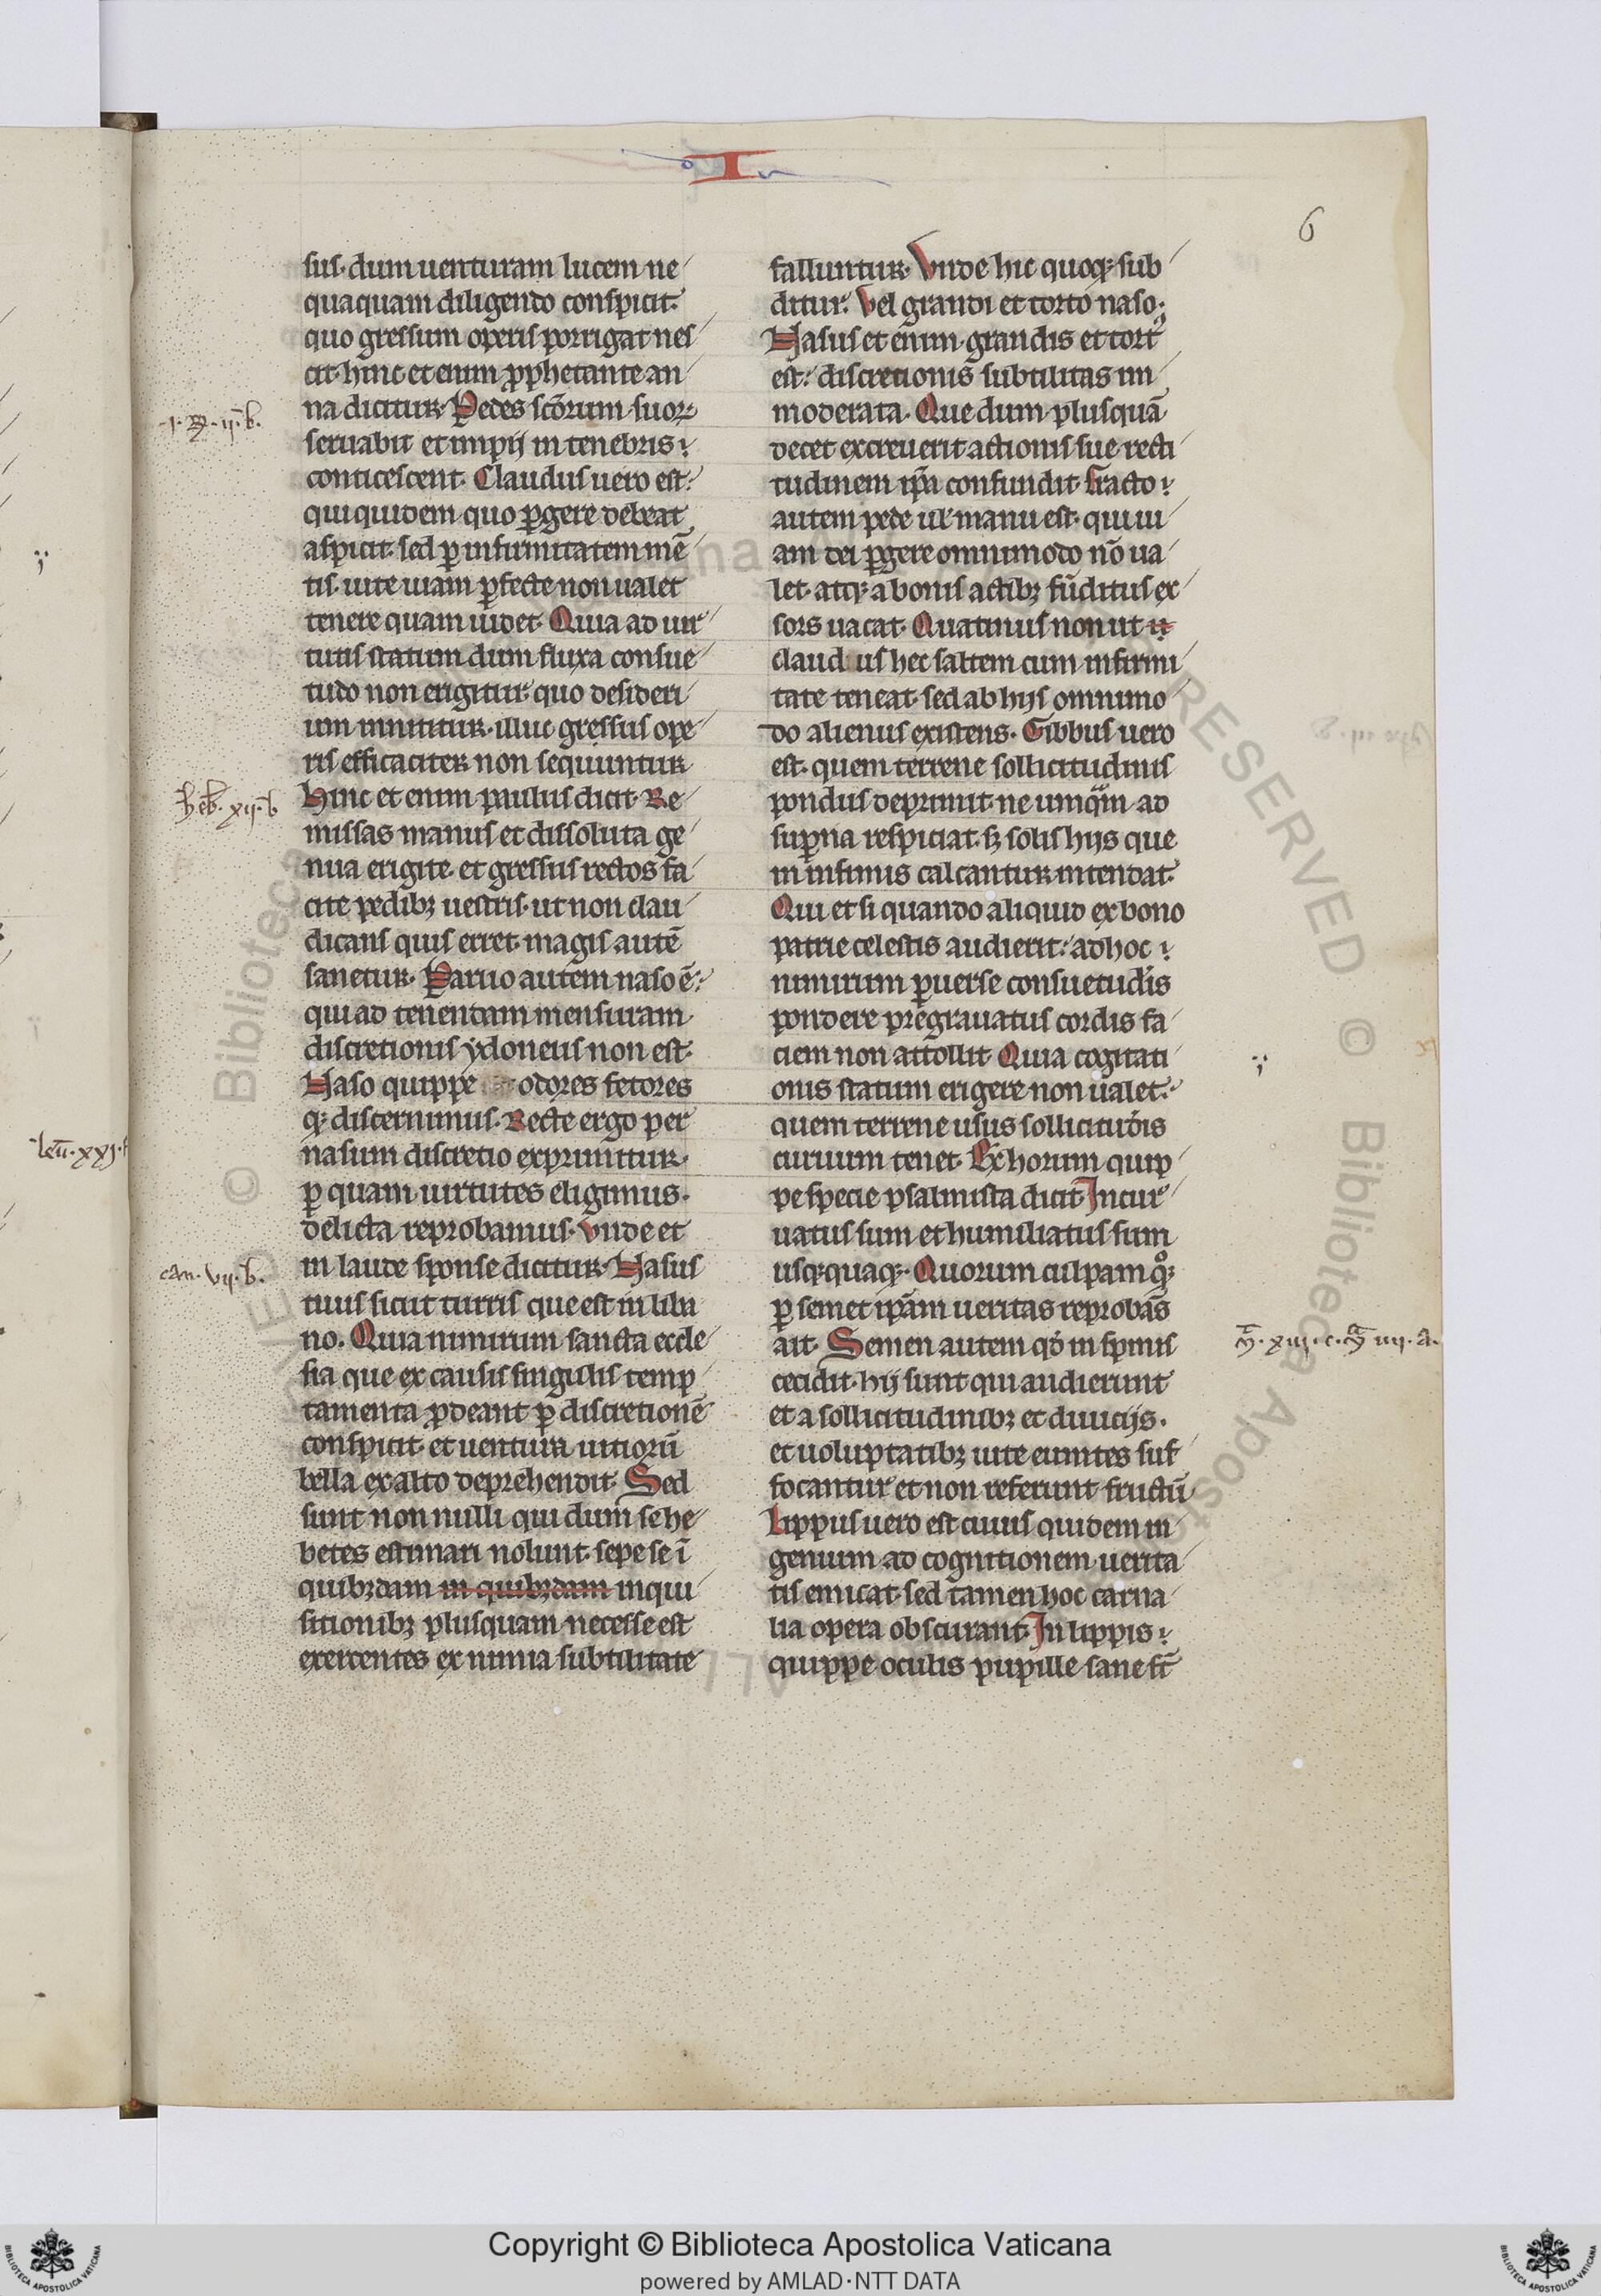 I
6
sus. dum uenturam lucem ne
quaquam diligendo conspicit.
quo gressum operis porrigat nes
cit. hinc et enim ꝓphetante an
na dicitur. Pedes sc̄orum suoꝝ
seruabit et impij in tenebris
conticescent. Claudus uero est.
qui quidem quo ꝑgere debeat
aspicit. sed ꝑ infirmitatem mē
tis. uite uiam ꝑfecte non ualet
tenere quam uidet. Quia ad uir
tutis statum dum fluxa consue
tudo non erigitur. quo desideri
um innititur. illuc gressus ope
ris efficaciter non sequuntur
Hinc et enim paulus dicit. Re
missas manus et dissoluta ge
nua erigite. et gressus rectos fa
cite pedibꝫ uestris. ut non clau
dicans quis erret. magis autē
sanetur. Paruo autem naso ē.
qui ad tenendam mensuram
discretionis ydoneus non est.
Naso quippe odores fetores
qꝫ discernimus. Recte ergo per
nasum discretio exprimitur.
ꝑ quam uirtutes eligimus.
delicta reprobamus. Vnde et
in laude sponse dicitur. Nasus
tuus sicut turris que est in liba
no. Quia nimirum sancta eccle
sia que ex causis singulis temp
tamenta ꝓdeant ꝑ discretionē
conspicit. et uentura uitiorū
bella ex alto deprehendit. Sed
sunt non nulli qui dum se he
betes estimari nolunt. sepe se ī
quibꝫdam in quibꝫdam inqui
sitionibꝫ plusquam necesse est
exercentes ex nimia subtilitate
falluntur. Vnde hic quoqꝫ sub
ditur. Vel grandi et torto naso.
Nasus et enim grandis et tortꝰ
est. discretionis subtilitas im
moderata. Que dum plusquā
decet excreuerit actionis sue recti
tudinem ip̄a confundit. Fracto
autem pede ul̓ manu est. qui ui
am dei ꝑgere omnimodo nō ua
let. atqꝫ a bonis actibꝫ fūditus ex
sors uacat. Quatinus non ut u
claudus hec saltem cum infirmi
tate teneat. sed ab hijs omnimo
do alienus existens. Gibbus uero
est. quem terrene sollicitudinis
pondus deprimit. ne umqᷓm ad
suꝑna respiciat. sꝫ solis hijs que
in infimis calcantur intendat.
Qui et si quando aliquid ex bono
patrie celestis audierit. ad hoc
nimirum ꝑuerse consuetud̓is
pondere pregrauatus cordis fa
ciem non attollit. Quia cogitati
onis statum erigere non ualet.
quem terrene usus sollicitud̓is
curuum tenet. Ex horum quip
pe specie psalmista dicit. Incur
uatus sum et humiliatus sum
usqꝫquaqꝫ. Quorum culpam qͦꝫ
ꝑ semet ip̄am ueritas reprobās
ait. Semen autem qd̓ in spinis
cecidit. hij sunt qui audierunt
et a sollicitudinibꝫ et diuicijs.
et uoluptatibꝫ uite euntes suf
focantur et non referunt fructū
Lippus uero est cuius quidem in
genium ad cognitionem uerita
tis emicat. sed tamen hoc carna
lia opera obscurant. In lippis
quippe oculis pupille sane sūt
.i. R. ij. b.
heb. xij. b
can. vij. b.
leū. xxj.
m̄. xiij. c. m̄ iiij. a.
Copyright © Biblioteca Apostolica Vaticana
powered by AMLAD·NTT DATA